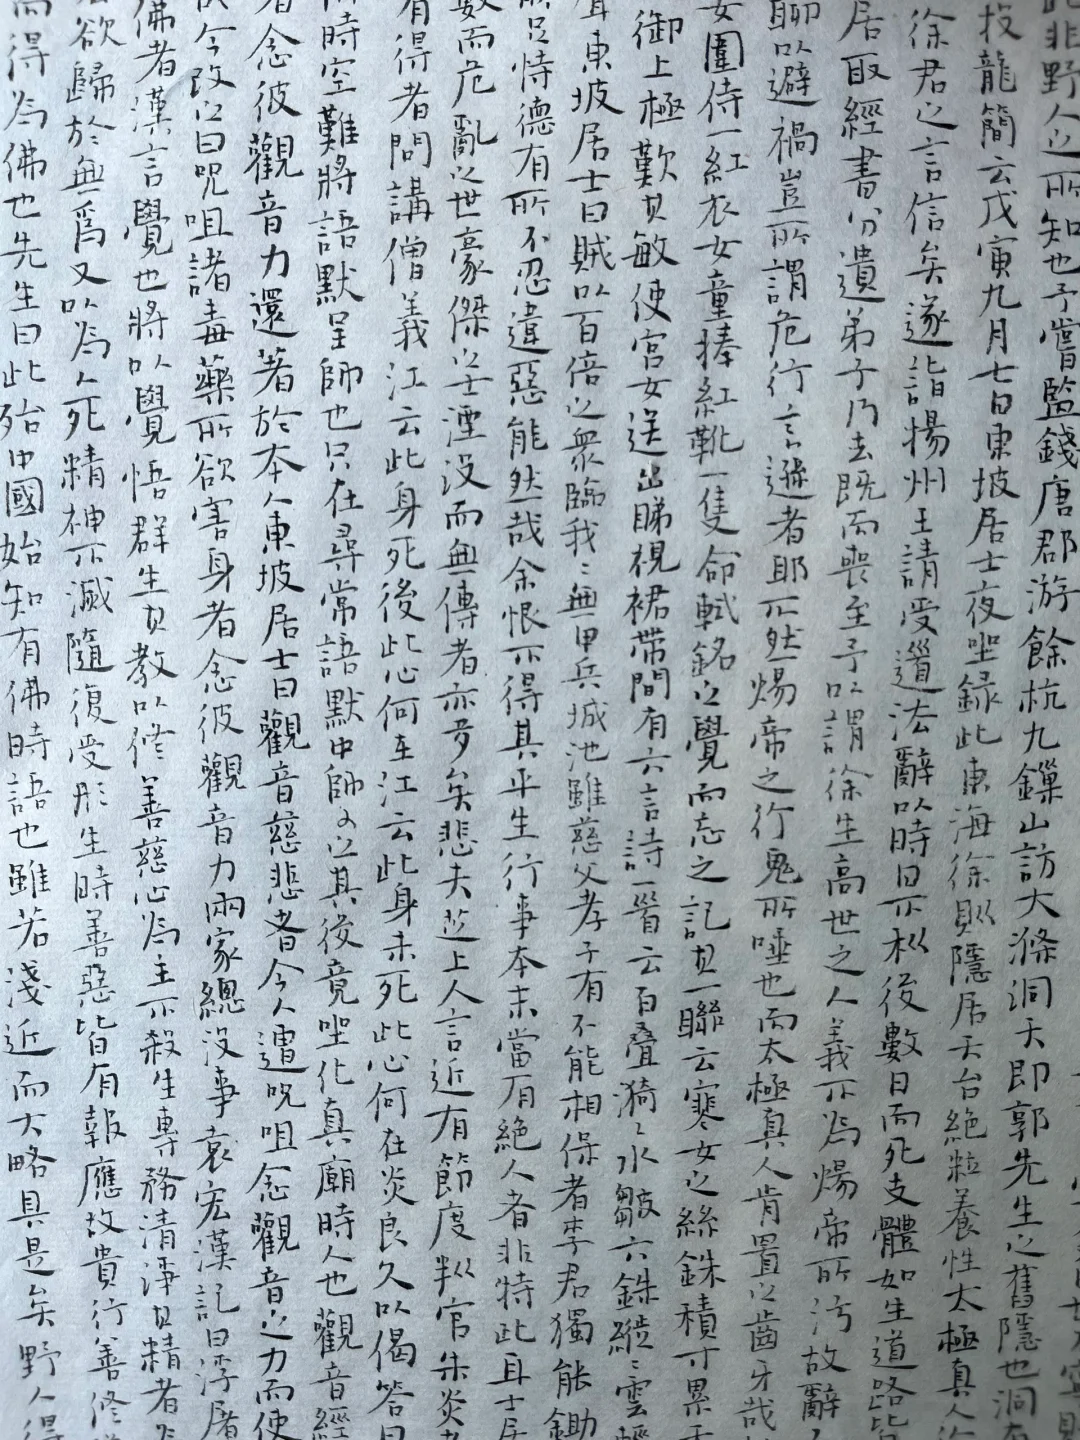 此非野人之所知也予嘗監錢唐郡游餘杭九鏁山訪大滌洞天即郭先生之舊隱也洞有
投龍簡云戊寅九月七日東坡居士夜坐録此東海徐則隱居天台絶粒養性太極真人
徐君之言信矣遂詣揚州王請受道法辭以時日不利後數日而死支體如生道路皆
居取經書分遺弟子乃去既而喪至予以謂徐生高世之人義不為煬帝所汚故辭
聊以避禍豈所謂危行言遜者耶不然煬帝之行鬼所唾也而太極真人肯置以齒牙哉
女圍侍一紅衣女童捧紅靴一隻命軾銘之覺而志之記其一聯云寒女之絲銖積寸累
御上極歎其敏使宮女送出睇視裙帶間有六言詩一首云百叠漪ミ水皺六銖縰ミ雲輕
東坡居士曰賊以百倍之衆臨我ミ無甲兵城池雖慈父孝子有不能相保者李君獨能鋤
恃德有所不忍違惡能然哉余恨不得其平生行事本末當有絶人者非特此耳士
數而危亂之世豪傑之士湮没而無傳者亦多矣悲夫芝上人言近有節度判官朱炎
有得者問講僧義江云此身死後此心何在江云此身未死此心何在炎良久以偈答曰
時空難將語默呈師也只在尋常語默中師可之其後竟坐化真廟時人也觀音經
者念彼觀音力還著於本人東坡居士曰觀音慈悲者今人遭呪咀念觀音之力而使
今改之曰呪咀諸毒藥所欲害身者念彼觀音力兩家總没事袁宏漢記曰浮屠
佛者漢言覺也將以覺悟群生其教以修善慈心為主不殺生專務清浄其精者
欲歸於無為又以為人死精神不滅隨復受形生時善惡皆有報應故貴行善修
而得為佛也先生曰此殆中國始知有佛時語也雖若淺近而大略具是矣野人得